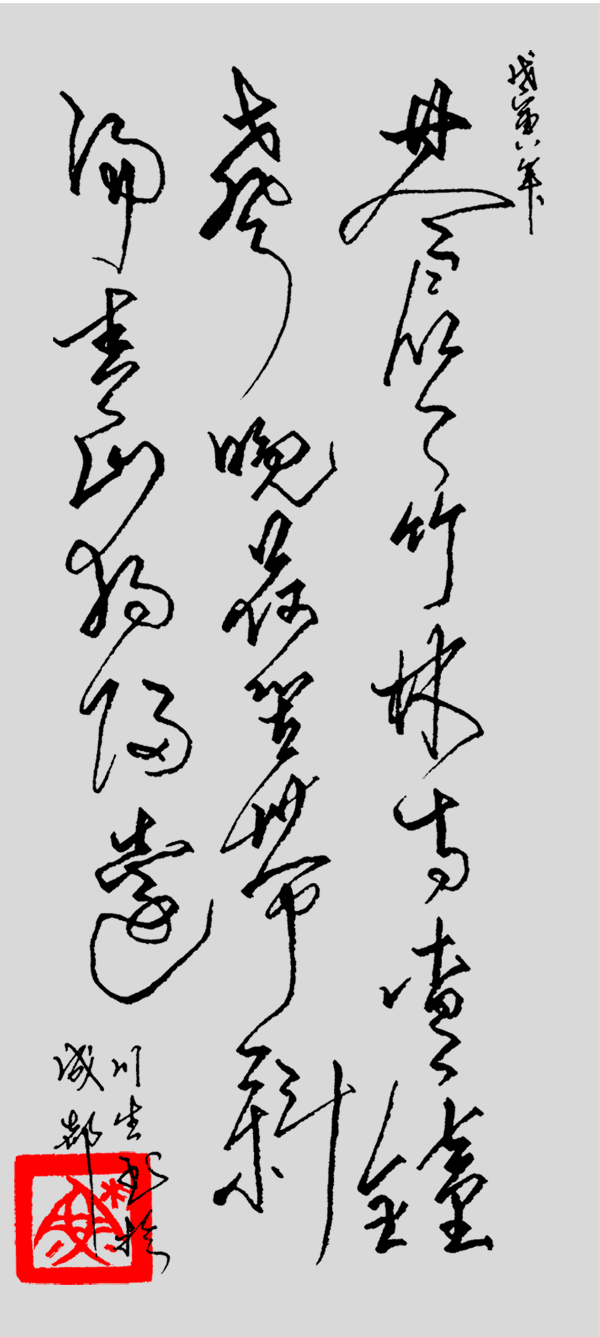 戊寅八年
蒼蒼竹林寺杳杳鐘
聲晚荷笠帶斜
陽青山獨歸遠
川生於
成都